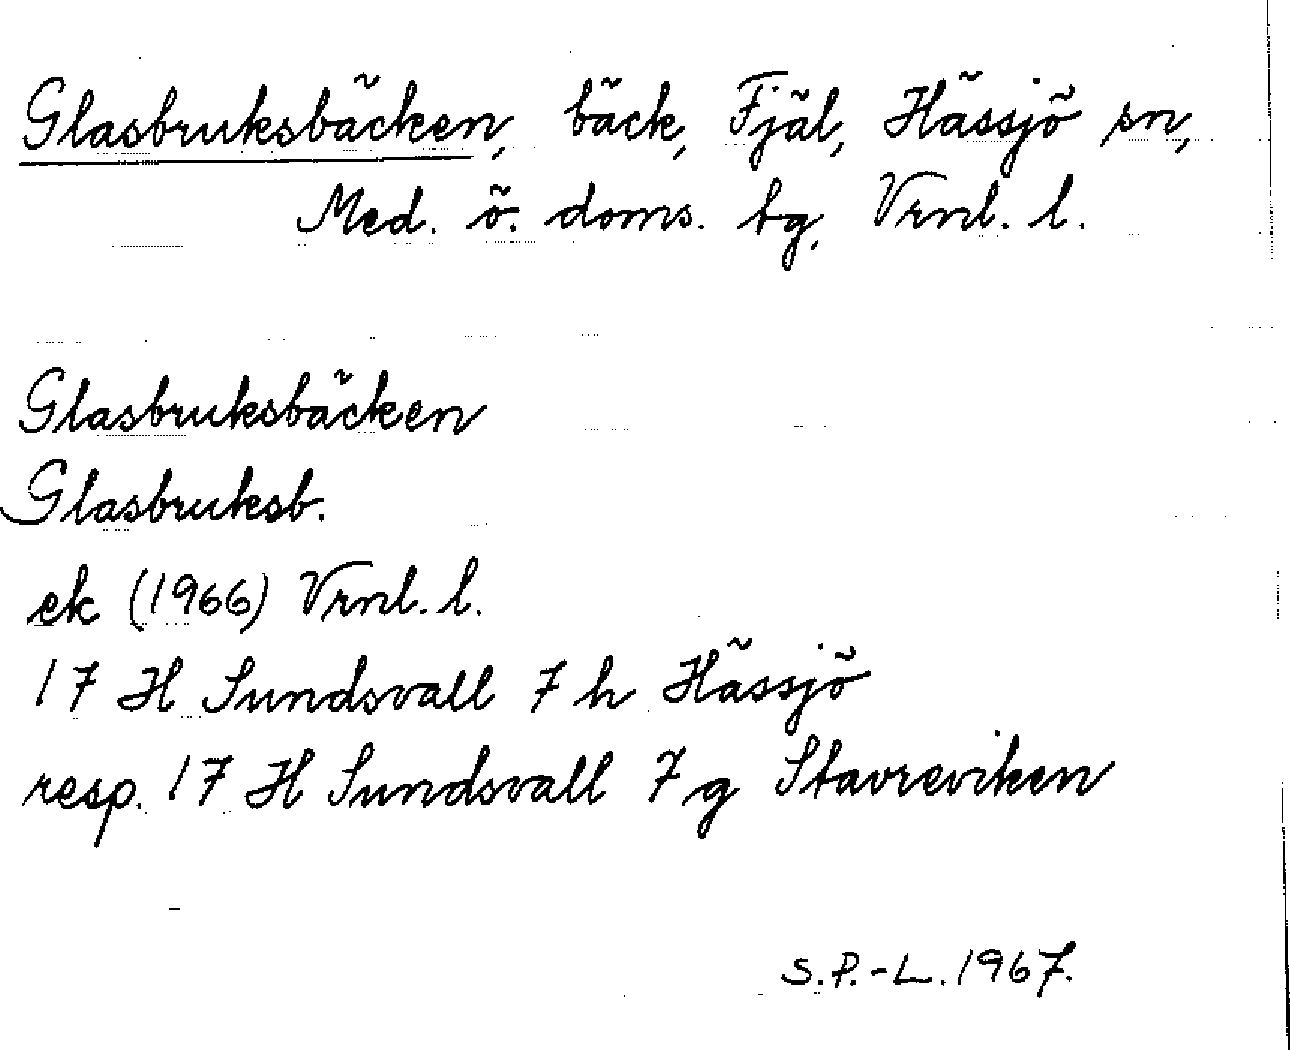 Glasbruksbäcken, bäck, Fjäl, Hässjö sn,
Med. ö. doms. tg, Vrnl. l.
Glasbruksbäcken
Glasbruksb.
ek (1966) Vrnl. l.
17 H Sundsvall 7 h Hässjö
resp. 17 H Sundsvall 7 g Stavreviken
S.P.-L. 1967.